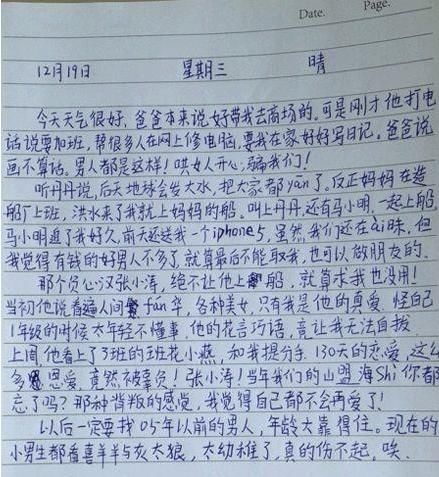 Date. Page.
12月19日 星期三 晴
今天天气很好，爸爸本来说好带我去商场的。可是刚才他打电
话说要加班，帮很多人在网上修电脑，要我在家好好写日记。爸爸说
画不算话。男人都是这样！哄女人开心，骗我们！
听丹丹说，后天地球会发大水，把大家都yān了。反正妈妈在造
船厂上班，洪水来了我就上妈妈的船。叫上丹丹，还有马小明，一起上船。
马小明追了我好久，前天还送我一个iphone5，虽然我们还在ài昧，但
我觉得有钱的好男人不多了，就算最后不能取我，也可以做朋友的。
那个负心汉张小涛，绝不让他上船，就算求我也没用！
当初他说看遍人间fán华，各种美女，只有我是他的真爱。怪自己
1年级的时候太年轻不懂事，他的花言巧语，竟让我无法自拔
上周他看上了3班的班花小燕，和我提分手。130天的恋爱，这么
多恩爱，竟然被辜负！张小涛！当年我们的山盟海Shì你都
忘了吗？那种背叛的感觉，我觉得自己都不会再爱了！
以后一定要找05年以前的男人，年龄大靠得住。现在的
小男生都看喜羊羊与灰太狼，太幼稚了，真的伤不起，唉。